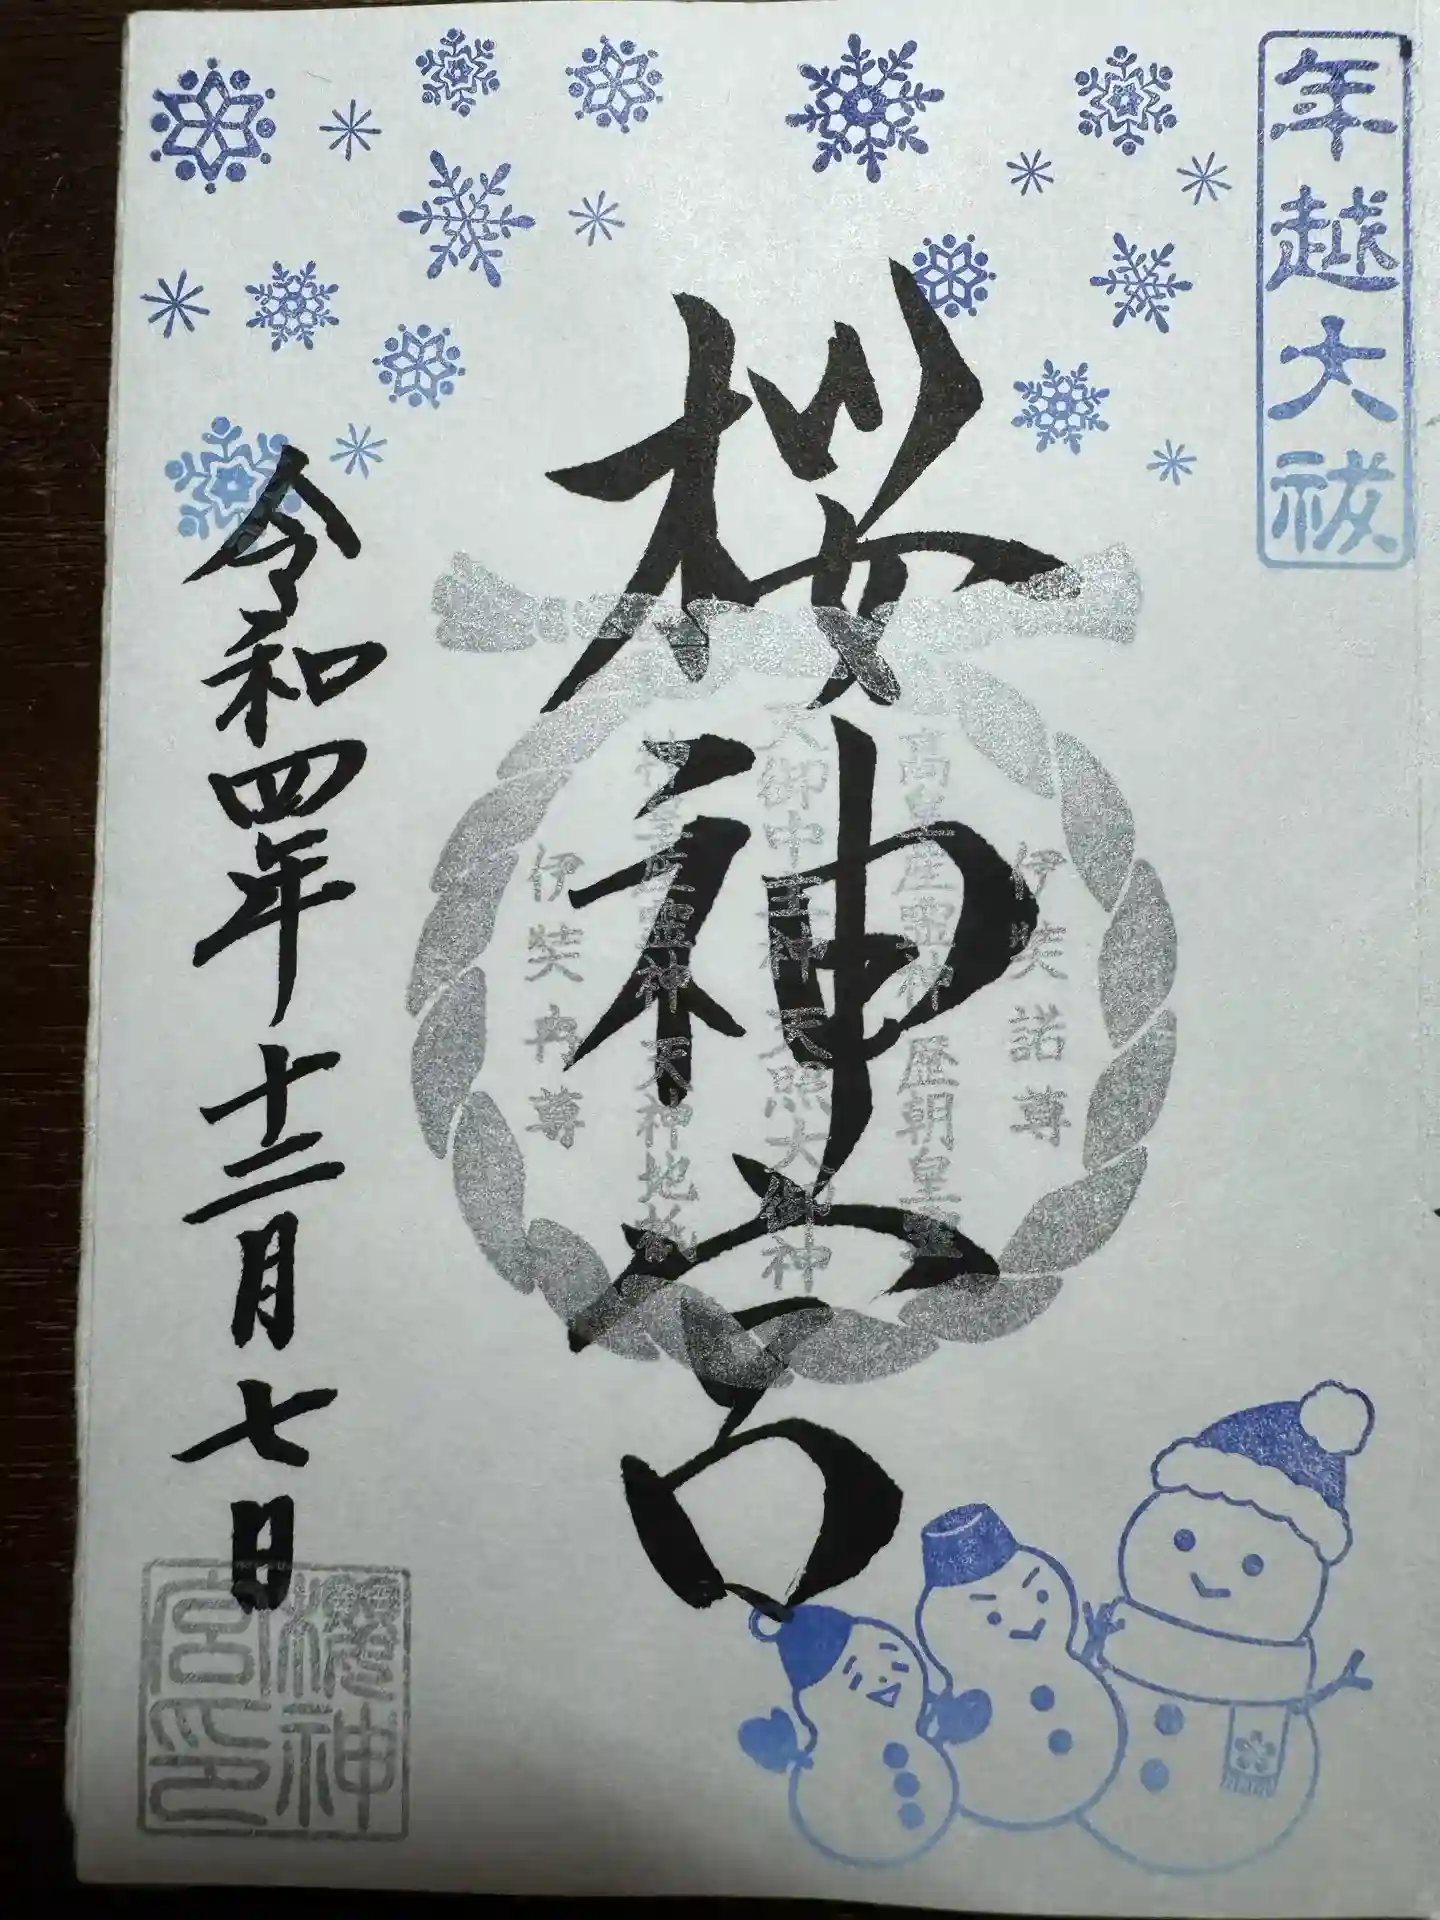 年越大祓
桜神宮
伊奘諾尊
高皇産霊神 歴朝皇霊
天御中主神 天照大御神
神皇産霊神 天神地祇
伊奘冉尊
令和四年十二月七日
櫻神
宮印